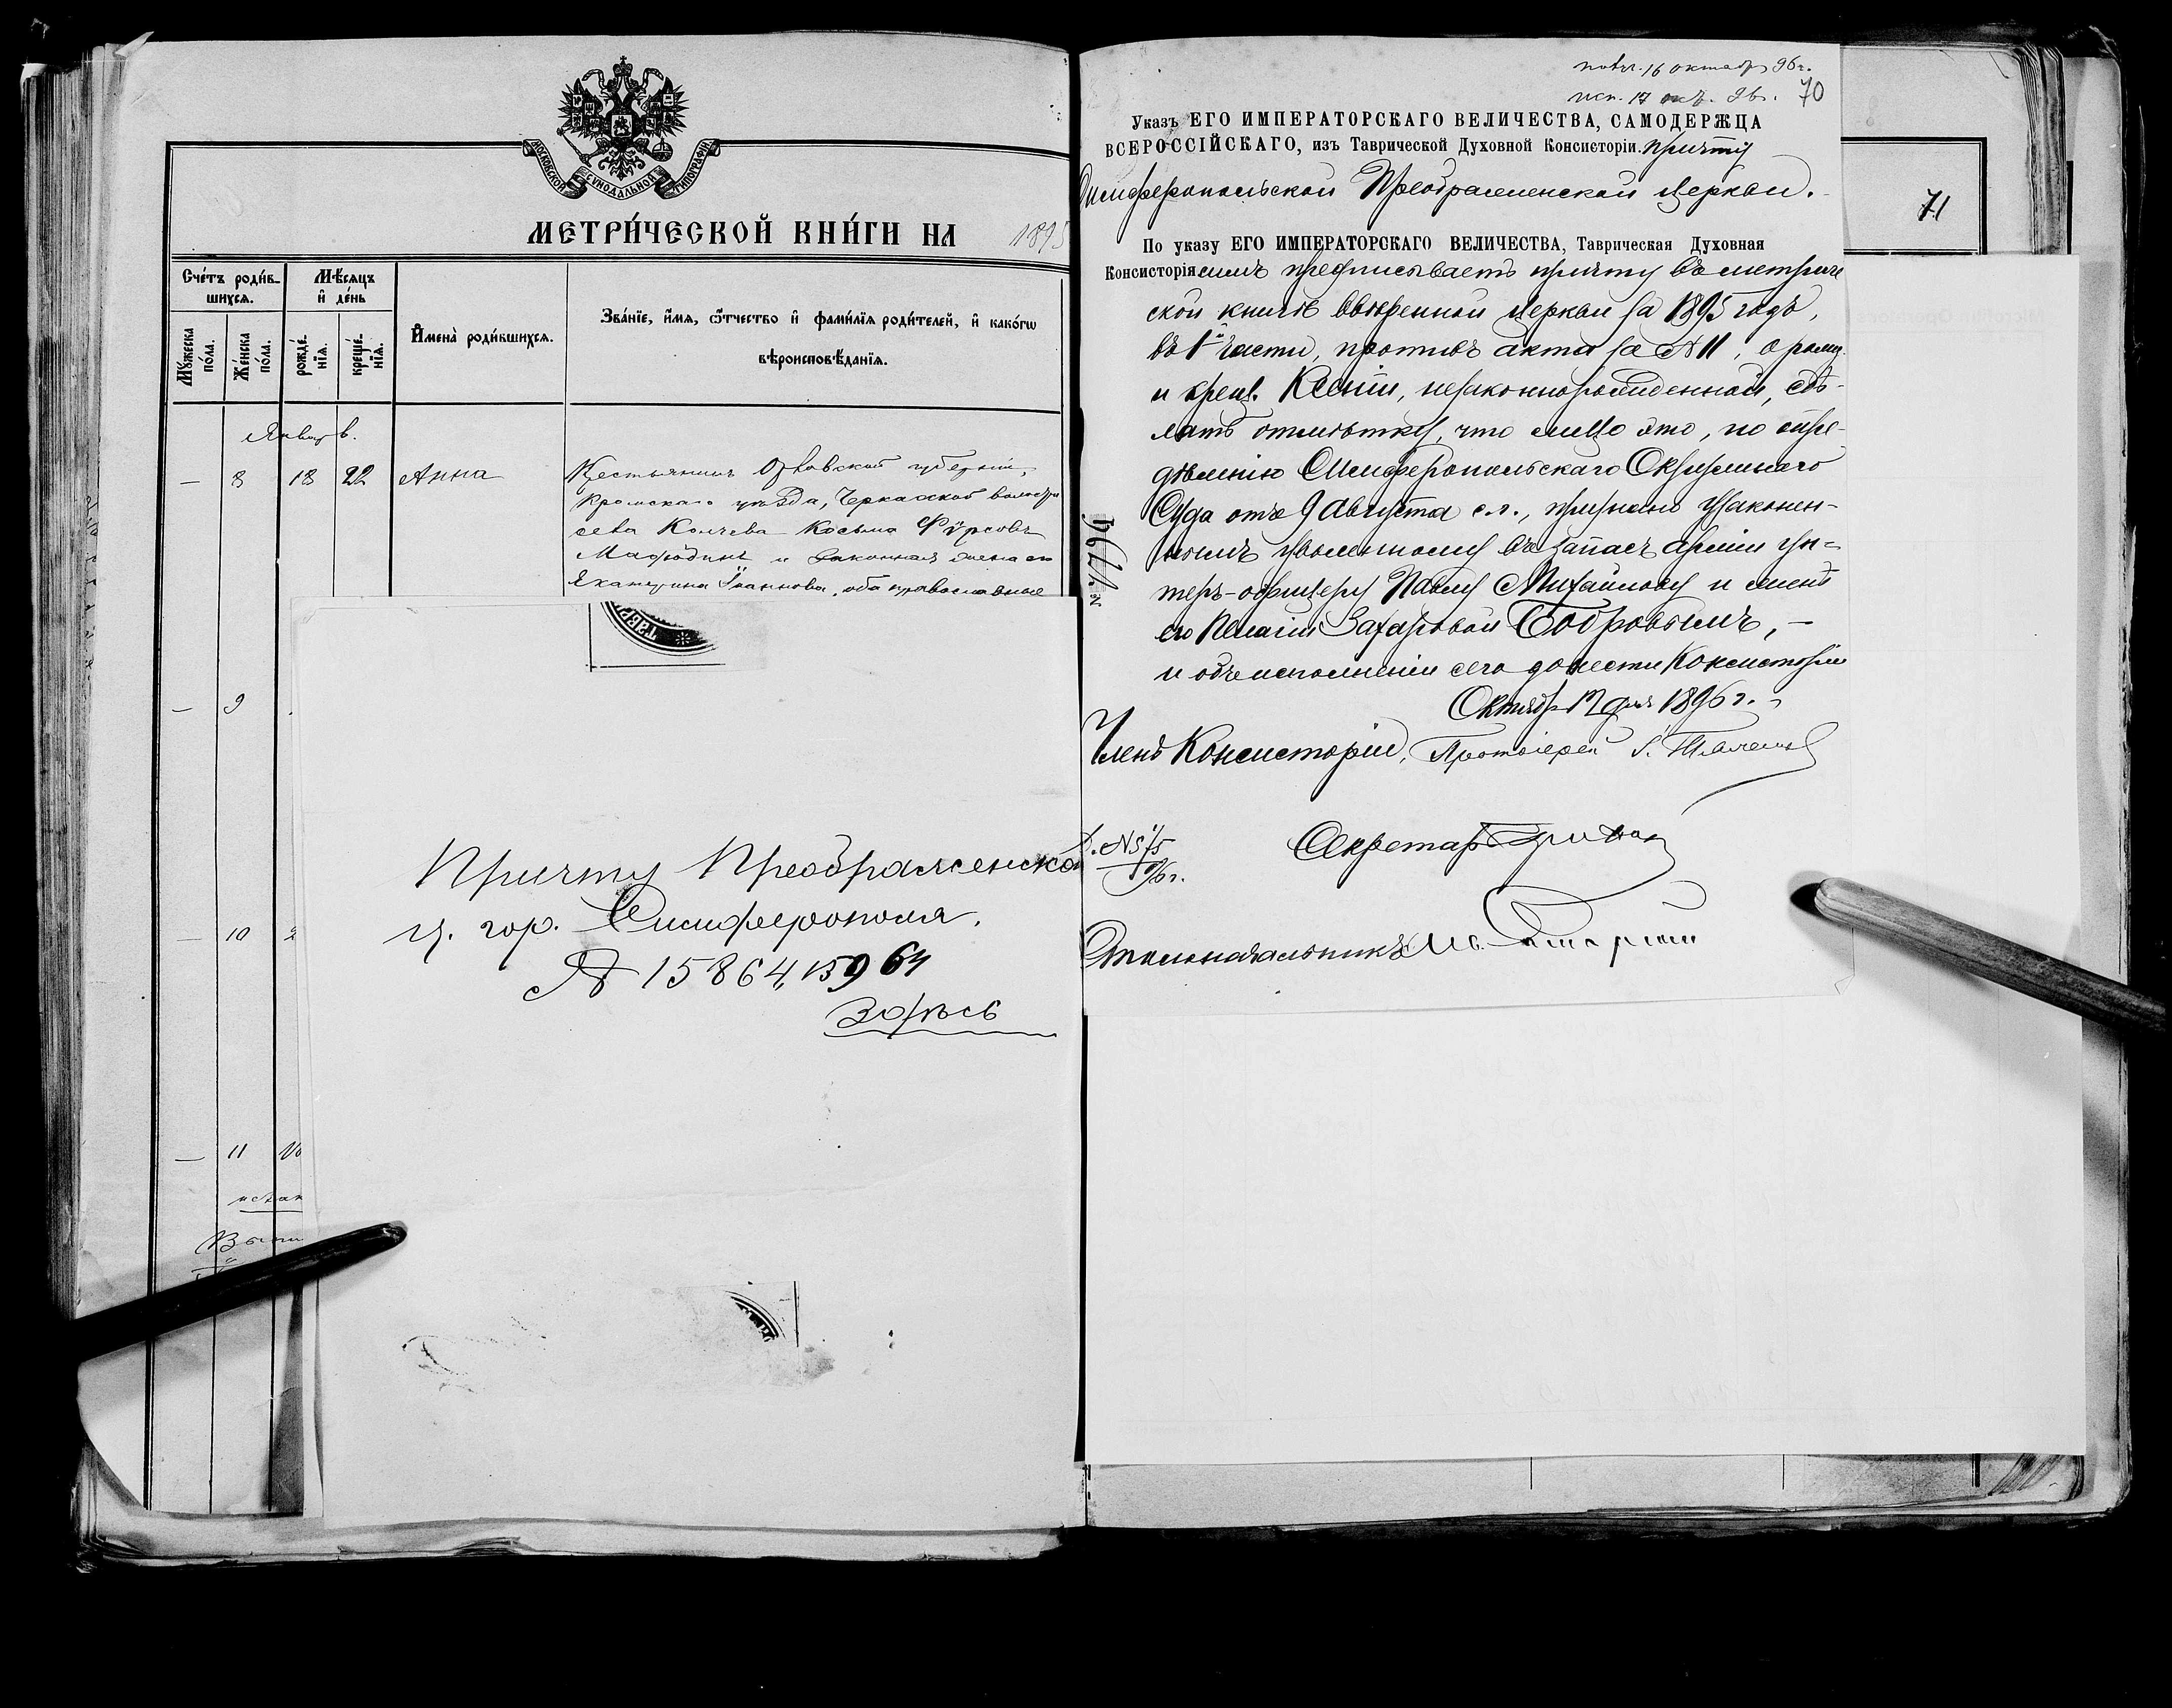 МОСКОВСКОЙ СѴНОДАЛЬНОЙ ТИПОГРАФІИ
МЕТРИ́ЧЕСКОЙ КНИ́ГИ НА 1895
Сче́тъ роди́в-
шихся.
Мѣ́сяцъ
и҆ де́нь
Мꙋ́жеска
по́ла.
Же́нска
по́ла.
рожде́-
нїѧ.
креще́-
нїѧ.
И҆мена̀ роди́вшихсѧ.
Зва́нїе, и҆́мѧ, ѻ҆́тчество и҆ фами́лїѧ роди́телей, и҆ како́гѡ
вѣроисповѣ́данїѧ.
Январь.
— 8 18 22 Анна
Крестьянинъ Орловской губерніи,
Кромскаго уѣзда, Черкасской волости
села Колчева Косьма
и законная жена его
Екатерина Іоаннова, оба православные
— 9
— 10 2
— 11
незак
Причту Преображенской
ц. гор. Симферополя.
№ 15864, 15964
Здѣсь
получ. 16 октябр 96 г.
исп. 17 окт. 96 г. 70
Указъ ЕГО ИМПЕРАТОРСКАГО ВЕЛИЧЕСТВА, САМОДЕРЖЦА
ВСЕРОССІЙСКАГО, изъ Таврической Духовной Консисторіи. Причту
Симферопольской Преображенской церкви.
71
По указу ЕГО ИМПЕРАТОРСКАГО ВЕЛИЧЕСТВА, Таврическая Духовная
Консисторія симъ предписываетъ причту въ метриче
ской книгѣ ввѣренной церкви за 1895 годъ,
въ 1й части, противъ акта за № 11, о рожд.
и крещ. Ксеніи, незаконнорожденной, сдѣ-
лать отмѣтку, что лицо это, по опре-
дѣленію Симферопольскаго Окружнаго
Суда отъ 9 Августа с.г., признано узаконен-
нымъ уволенному въ запасъ арміи ун-
теръ-офицеру Павлу Михайлову и женѣ
его Пелагіи Захаровой Бобровымъ, —
и объ исполненіи сего донести Консисторіи
Октябр 12 дня 1896 г.
Членъ Консисторіи, Протоіерей
Секретарь
Столоначальникъ